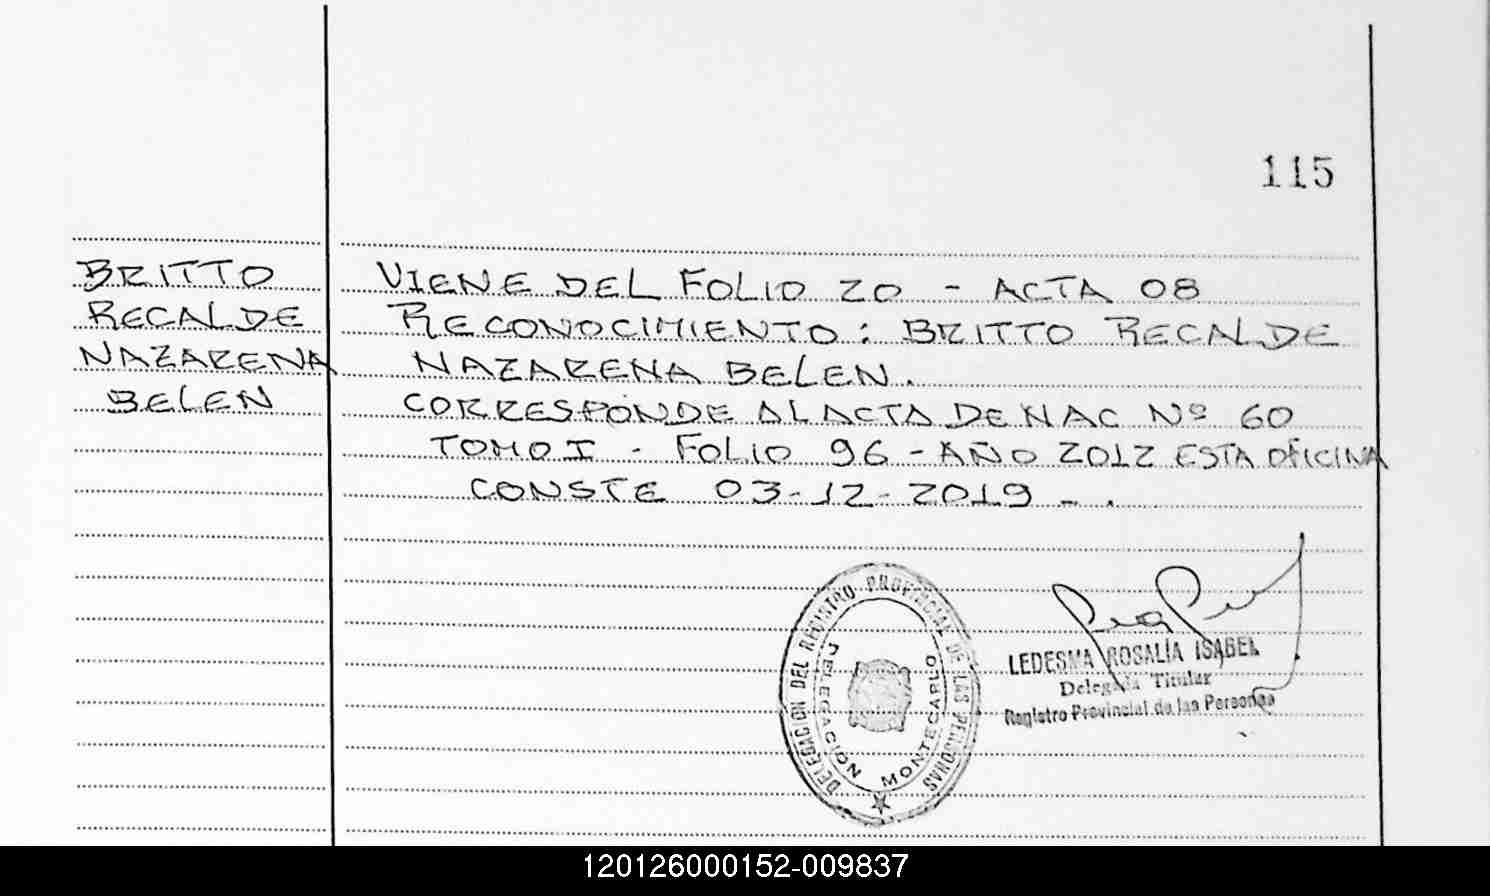 115
BRITTO
RECALDE
NAZARENA
BELEN
VIENE DEL FOLIO 20 - ACTA 08
RECONOCIMIENTO: BRITTO RECALDE
NAZARENA BELEN.
CORRESPONDE AL ACTA DE NAC Nº 60
TOMO I - FOLIO 96 - AÑO 2012 ESTA OFICINA
CONSTE 03-12-2019 - .
DELEGACION DEL REGISTRO PROVINCIAL DE LAS PERSONAS
DELEGACIÓN MONTECARLO
LEDESMA ROSALÍA ISABEL
Delegada Titular
Registro Provincial de las Personas
120126000152-009837